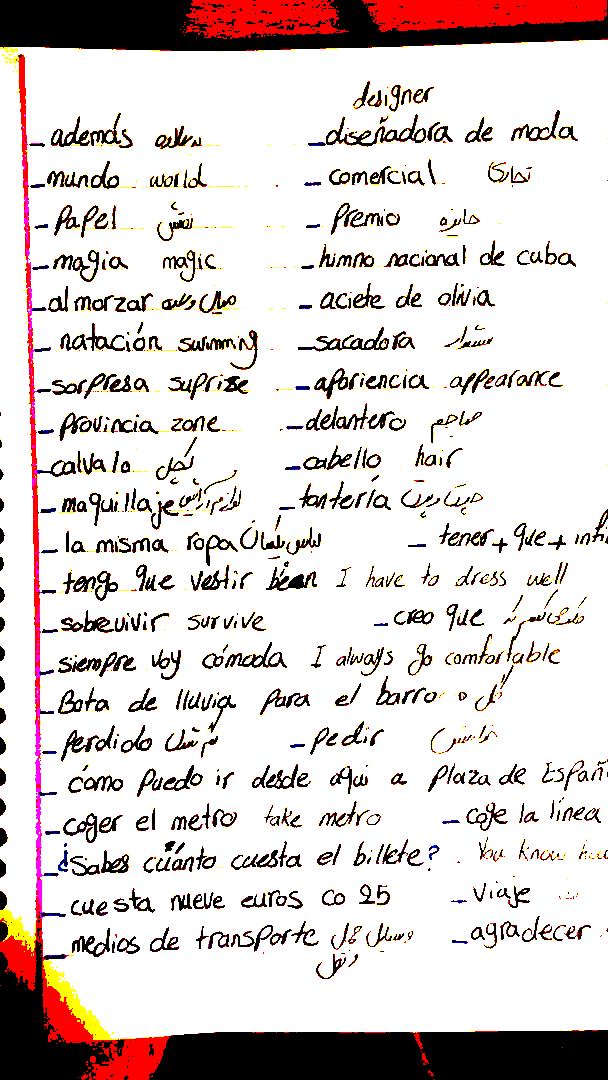 designer
_ además بعلاوه _ diseñadora de moda
_ mundo world _ comercial تجاری
_ Papel نقش _ Premio جایزه
_ magia magic _ himno nacional de cuba
_ almorzar _ aciete de olivia
_ natación swimming _ sacadora
_ sorpresa suprize _ apariencia appearance
_ Provincia zone _ delantero مهاجم
_ calvalo _ cabello hair
_ maquillaje لوازم آرایش _ tontería چرت و پرت
_ la misma ropa لباس یکسان _ tener + que + infi
_ tengo que vestir bien I have to dress well
_ sobrevivir survive _ creo que فکر می کنم که
_ siempre voy cómoda I always go comfortable
_ Bota de lluvia para el barro گل
_ Perdido گم شدن _ Pedir خواستن
_ cómo Puedo ir desde aqui a Plaza de Españ
_ coger el metro take metro _ coge la línea
_ ¿Sabes cuánto cuesta el billete? . You know how
_ cuesta nueve euros co 25 _ Viaje
_ medios de transporte وسایل حمل و نقل _ agradecer